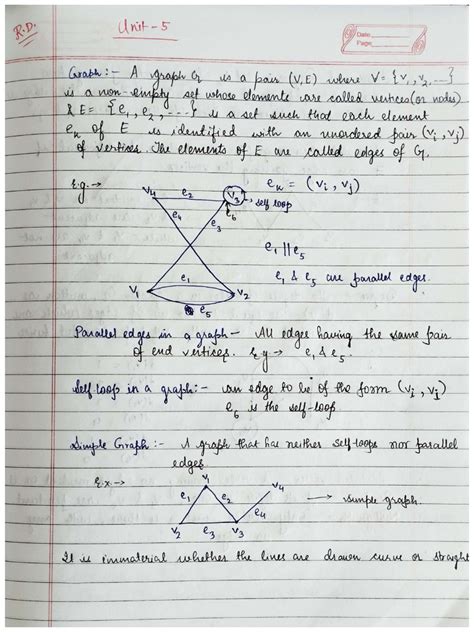 R.D.
Unit-5
Date
Page
Graph:- A graph G is a pair (V, E) where V = {v₁, v₂, ...}
is a non-empty set whose elements are called vertices (or nodes)
& E = {e₁, e₂, ...} is a set such that each element
eₖ of E is identified with an unordered pair (vᵢ, vⱼ)
of vertices. The elements of E are called edges of G.
E.g. →
v₄ e₂ v₃
self loop
e₆
e₄ e₃
eₖ = (vᵢ, vⱼ)
e₁ || e₅
e₁ & e₅ are parallel edges.
v₁ e₁ v₂
e₅
Parallel edges in a graph - All edges having the same pair
of end vertices. E.g → e₁ & e₅.
Self loop in a graph:- an edge to be of the form (vᵢ, vⱼ)
e₆ is the self-loop
Simple Graph:- A graph that has neither self-loops nor parallel
edges
E.x. →
v₁ v₄
e₁ e₂ e₄
→ simple graph.
v₂ e₃ v₃
It is immaterial whether the lines are drawn curve or straight